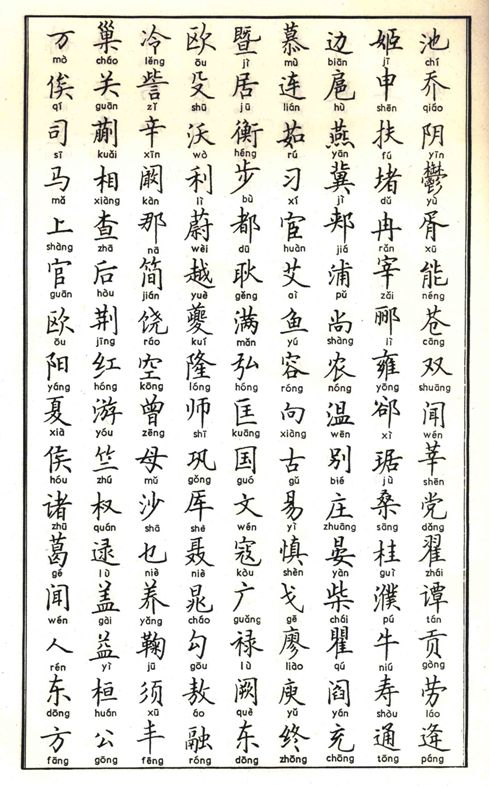 池 chí 乔 qiáo 阴 yīn 鬱 yù 胥 xū 能 néng 苍 cāng 双 shuāng 闻 wén 莘 shēn 党 dǎng 翟 zhái 谭 tán 贡 gòng 劳 láo 逄 páng
姬 jī 申 shēn 扶 fú 堵 dǔ 冉 rǎn 宰 zǎi 郦 lì 雍 yōng 郤 xì 璩 jù 桑 sāng 桂 guì 濮 pú 牛 niú 寿 shòu 通 tōng
边 biān 扈 hù 燕 yān 冀 jì 郏 jiá 浦 pǔ 尚 shàng 农 nóng 温 wēn 别 bié 庄 zhuāng 晏 yàn 柴 chái 瞿 qú 阎 yán 充 chōng
慕 mù 连 lián 茹 rú 习 xí 宦 huàn 艾 ài 鱼 yú 容 róng 向 xiàng 古 gǔ 易 yì 慎 shèn 戈 gē 廖 liào 庾 yǔ 终 zhōng
暨 jì 居 jū 衡 héng 步 bù 都 dū 耿 gěng 满 mǎn 弘 hóng 匡 kuāng 国 guó 文 wén 寇 kòu 广 guǎng 禄 lù 阙 què 东 dōng
欧 ōu 殳 shū 沃 wò 利 lì 蔚 wèi 越 yuè 夔 kuí 隆 lóng 师 shī 巩 gǒng 厍 shè 聂 niè 晁 cháo 勾 gōu 敖 áo 融 róng
冷 lěng 訾 zī 辛 xīn 阚 kàn 那 nā 简 jiǎn 饶 ráo 空 kōng 曾 zēng 母 mǔ 沙 shā 乜 niè 养 yǎng 鞠 jū 须 xū 丰 fēng
巢 cháo 关 guān 蒯 kuǎi 相 xiàng 查 zhā 后 hòu 荆 jīng 红 hóng 游 yóu 竺 zhú 权 quán 逯 lù 盖 gài 益 yì 桓 huán 公 gōng
万 mò 俟 qí 司 sī 马 mǎ 上 shàng 官 guān 欧 ōu 阳 yáng 夏 xià 侯 hóu 诸 zhū 葛 gé 闻 wén 人 rén 东 dōng 方 fāng